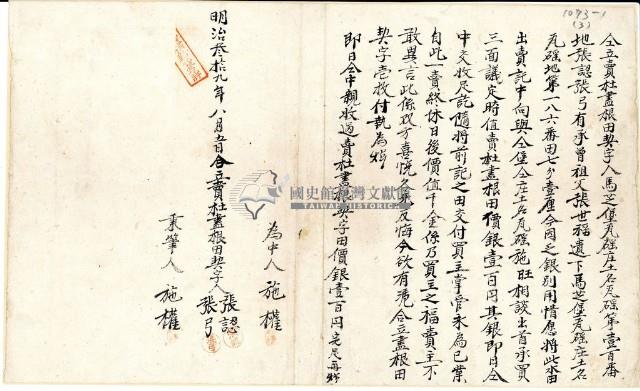 1093-1
(3)
仝立賣杜盡根田契字人馬芝堡瓦磘庄土名瓦磘第壹百番
地張認張弓有承曾祖父張世福遺下馬芝堡瓦磘庄土名
瓦磘地第一八六番田七分壹厘今因乏銀別用情愿將此水田
出賣託中向與仝堡仝庄土名瓦磘施旺相談出首承買
三面議定時值賣杜盡根田價銀壹百円其銀即日仝
中交收足訖隨將前記之田交付買主掌管永為己業
自此一賣終休日後價值千金係乃買主之福賣主不
敢異言此係双方喜悅各無反悔今欲有憑合立盡根田
契字壹枚付執為炤
即日仝中親收過賣杜盡根契字田價銀壹百円完足再炤
為中人 施權
秉筆人 施權
明治叄拾九年八月五日仝立賣杜盡根田契字人 張認
張弓
國史館臺灣文獻館
TAIWAN HISTORICA